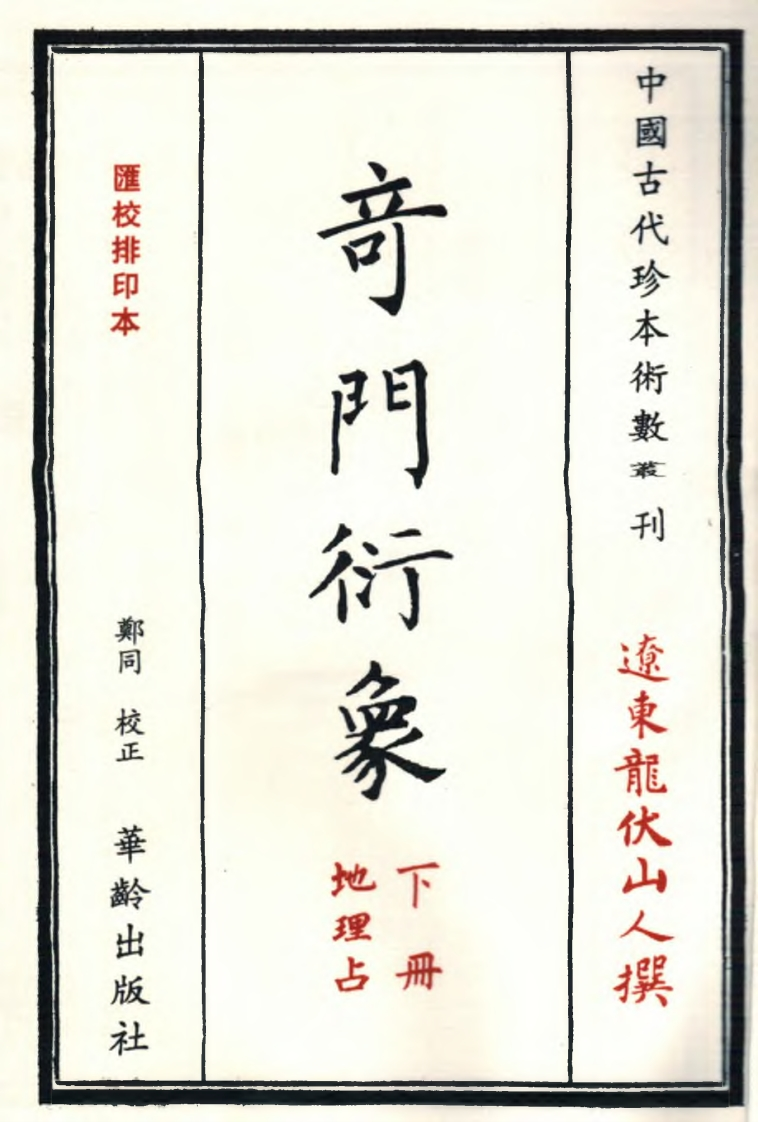 中國古代珍本術數叢刊
遼東龍伏山人撰
奇門衍象
下冊
地理占
匯校排印本
鄭同 校正
華齡出版社